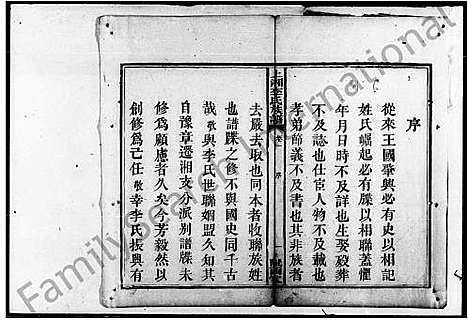 序
從來王國肇興必有史以相記
姓氏崛起必有牒以相聯蓋懼
年月日時不及詳也生娶殁葬
不及誌也仕宦人物不及載也
孝弟節義不及書也其非族者
上湘李氏族譜
卷
序
一
去嚴去取也同本者收聯族姓
也譜牒之修不與國史同千古
哉敬與李氏世聯姻盟久知其
自豫章遷湘支分派別譜牒未
修為顧慮者久矣今芳毅然以
創修為己任敬幸李氏振興有
FamilySearch International